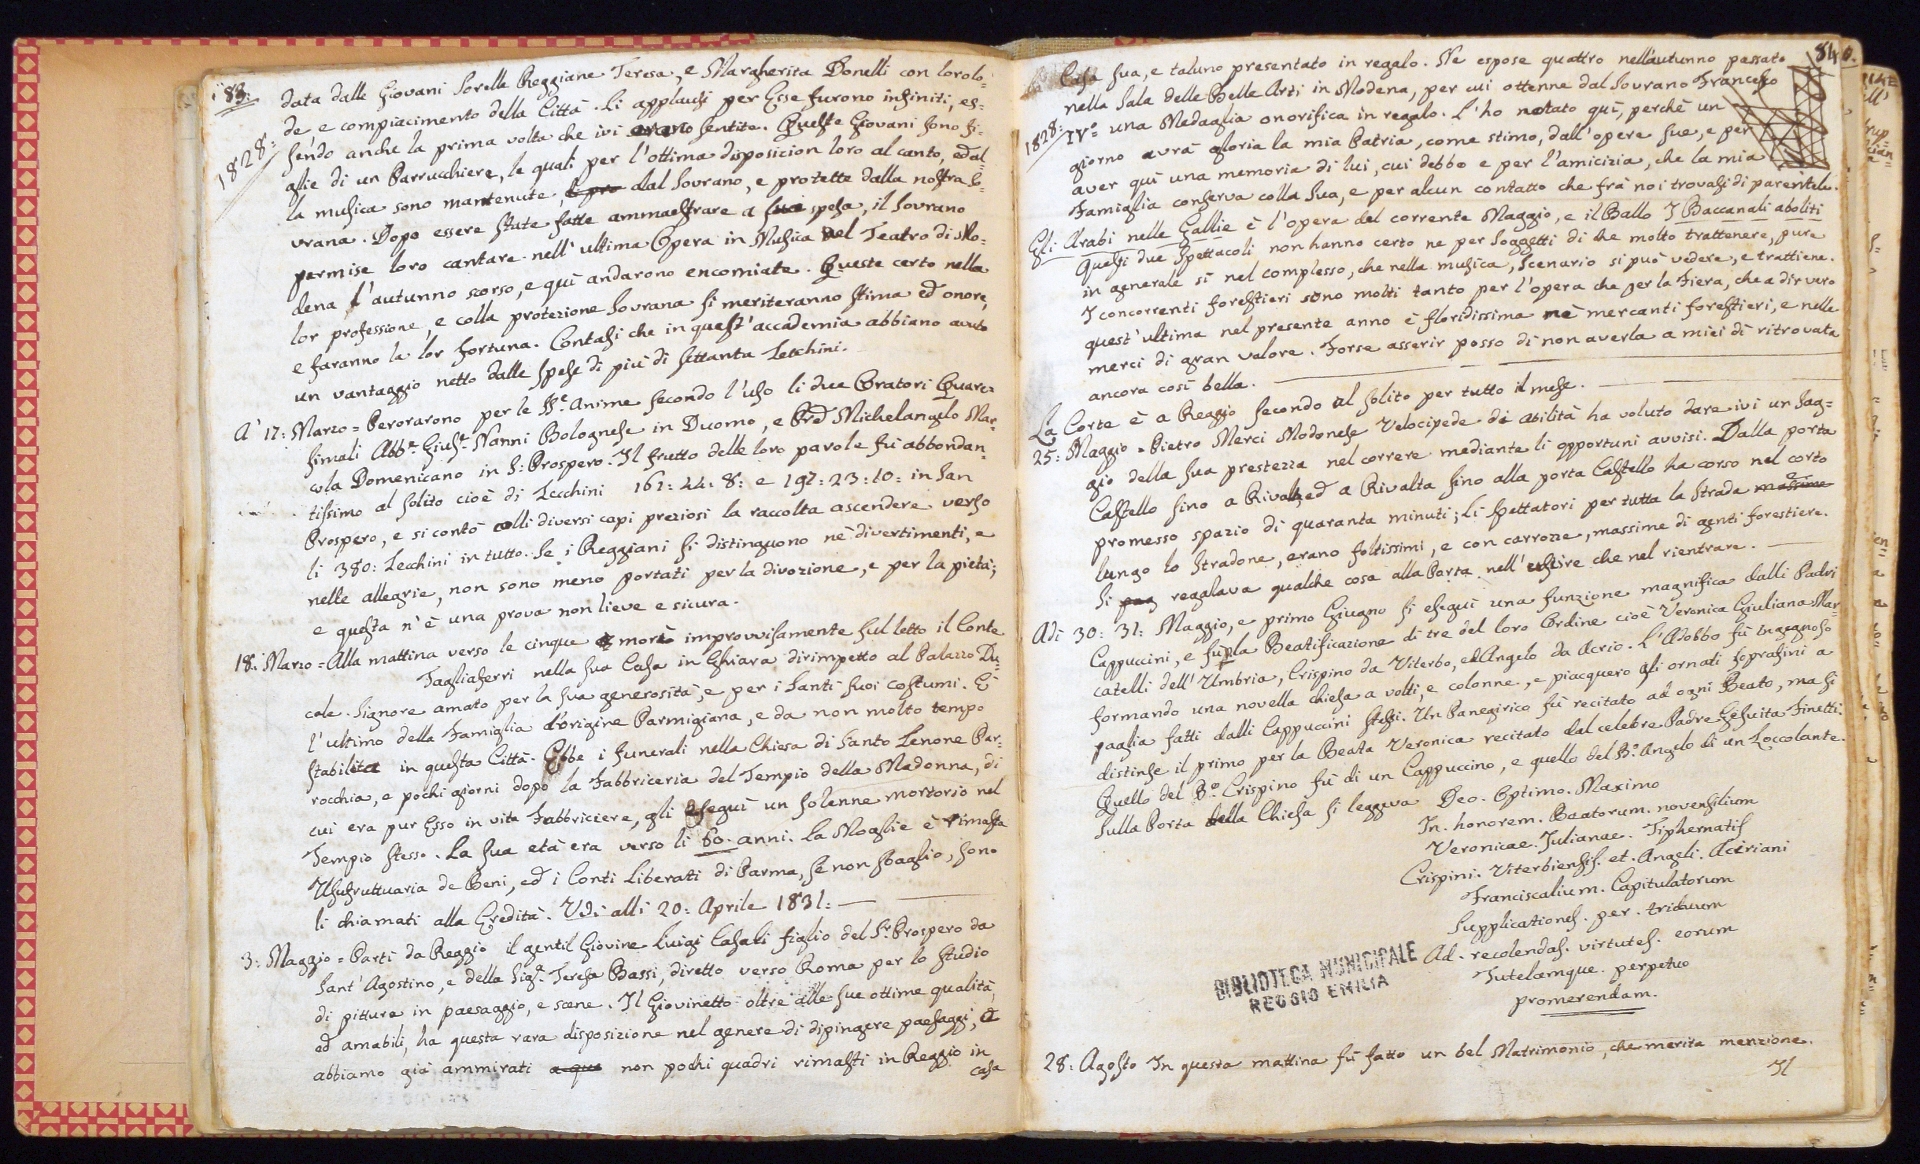 83.
1828:
data dalle Giovani Sorelle Reggiane Teresa, e Margherita Donelli con loro lo-
de e compiacimento della Città. Li applausi per Esse furono infiniti, es-
sendo anche la prima volta che ivi erano sentite. Queste Giovani sono fi-
glie di un Parrucchiere, le quali per l'ottima disposicion loro al canto, ed al-
la musica sono mantenute, dal Sovrano, e protette dalla nostra So-
vrana. Dopo essere state fatte ammaestrare a sua spesa, il Sovrano
permise loro cantare nell'ultima Opera in Musica nel Teatro di Mo-
dena l'autunno scorso, e quì andarono encomiate. Queste certo nella
lor professione, e colla protezione Sovrana si meriteranno stima ed onore,
e faranno la lor fortuna. Contasi che in quest'accademia abbiano avuto
un vantaggio netto dalle spese di più di settanta Zecchini.
A' 17: Marzo = Perorarono per le SS.e Anime secondo l'uso li due Oratori Quare-
simali Abb.e Gius.e Nanni Bolognese in Duomo, e Pred. Michelangelo Mar-
cola Domenicano in S: Prospero. Il frutto delle loro parole fù abbondan-
tissimo al solito cioè di Zecchini 161: 44: 8: e 192: 23: 10: in San
Prospero, e si contò colli diversi capi preziosi la raccolta ascendere verso
li 380: Zecchini in tutto. Se i Reggiani si distinguono nè divertimenti, e
nelle allegrie, non sono meno portati per la divozione, e per la pietà;
e questa n'è una prova non lieve e sicura.
18: Marzo = Alla mattina verso le cinque morì improvvisamente sul letto il Conte
Tagliaferri nella sua Casa in Ghiara dirimpetto al Palazzo Du-
cale. Signore amato per la sua generosità e per i santi suoi costumi. È
l'ultimo della Famiglia d'origine Parmigiana, e da non molto tempo
stabilita in questa Città. Ebbe i funerali nella Chiesa di Santo Zenone Par-
rocchia, e pochi giorni dopo la Fabbriceria del Tempio della Madonna, di
cui era pur Esso in vita Fabbriciere, gli eseguì un solenne mortorio nel
Tempio stesso. La sua età era verso li 60. anni. La Moglie è rimasta
Usufruttuaria de Beni, ed i Conti Liberati di Parma, se non sbaglio, sono
li chiamati alla Eredità. Vdi alli 20: Aprile 1831:
3: Maggio = Partì da Reggio il gentil Giovine Luigi Casali figlio del S.r Prospero da
Sant'Agostino, e della Sig.a Teresa Bassi, diretto verso Roma per lo studio
di pitture in paesaggio, e scene. Il Giovinetto oltre alle sue ottime qualità,
ed amabili, ha questa rara disposizione nel genere di dipingere paesaggi, e
abbiamo già ammirati non pochi quadri rimasti in Reggio in
casa
84.
1828:
Casa sua, e taluno presentato in regalo. Ne espose quattro nell'autunno passato
nella Sala delle Belle Arti in Modena, per cui ottenne dal Sovrano Francesco
IV.o una Medaglia onorifica in regalo. L'ho notato quì, perchè un
giorno avrà gloria la mia Patria, come stimo, dall'opere sue, e per
aver quì una memoria di lui, cui debbo e per l'amicizia, che la mia
Famiglia conserva colla sua, e per alcun contatto che frà noi trovasi di parentela.
Gli Arabi nelle Gallie è l'opera del corrente Maggio, e il Ballo I Baccanali aboliti
Questi due spettacoli non hanno certo ne per soggetti di che molto trattenere, pure
in generale sì nel complesso, che nella musica, scenario si può vedere, e trattiene.
I concorrenti forestieri sono molti tanto per l'opera che per la Fiera, che a dir vero
quest'ultima nel presente anno è floridissima nè mercanti forestieri, e nelle
merci di gran valore. Forse asserir posso di non averla a miei dì ritrovata
ancora così bella.
La Corte è a Reggio secondo al solito per tutto il mese.
25: Maggio = Pietro Merci Modonese Velocipede di abilità ha voluto dare ivi un sag-
gio della sua prestezza nel correre mediante li opportuni avvisi. Dalla porta
Castello fino a Rivalta, ed a Rivalta fino alla porta Castello ha corso nel corto
promesso spazio di quaranta minuti; Li spettatori per tutta la strada massime
lungo lo Stradone, erano foltissimi, e con carrozze, massime di genti forestiere.
Si pag regalava qualche cosa alla Porta nell'escire che nel rientrare.
Adì 30: 31: Maggio, e primo Giugno si eseguì una funzione magnifica dalli Padri
Cappuccini, e fu p la Beatificazione di tre del loro Ordine cioè Veronica Giuliana Mar-
catelli dell'Umbria, Crispino da Viterbo, ed Angelo da Acrio. L'Adobbo fù ingegnoso
formando una novella chiesa a volti, e colonne, e piacquero gli ornati soprafini a
paglia fatti dalli Cappuccini stessi. Un Panegirico fù recitato ad ogni Beato, ma si
distinse il primo per la Beata Veronica recitato dal celebre Padre Gesuita Finetti.
Quello del B.o Crispino fù di un Cappuccino, e quello del B.o Angelo di un Zoccolante.
Sulla Porta della Chiesa si leggeva Deo. Optimo. Maximo
In. honorem. Beatorum. novensilium
Veronicae. Iulianae. Tiphernatis
Crispini. Viterbiensis. et. Angeli. Acririani
Franciscalium. Capitulatorum
Supplicationes. per. triduum
Ad. recolendas. virtutes. eorum
Tutelamque. perpetuo
promerendam.
BIBLIOTECA MUNICIPALE
REGGIO EMILIA
28: Agosto In questa mattina fù fatto un bel Matrimonio, che merita menzione.
Il